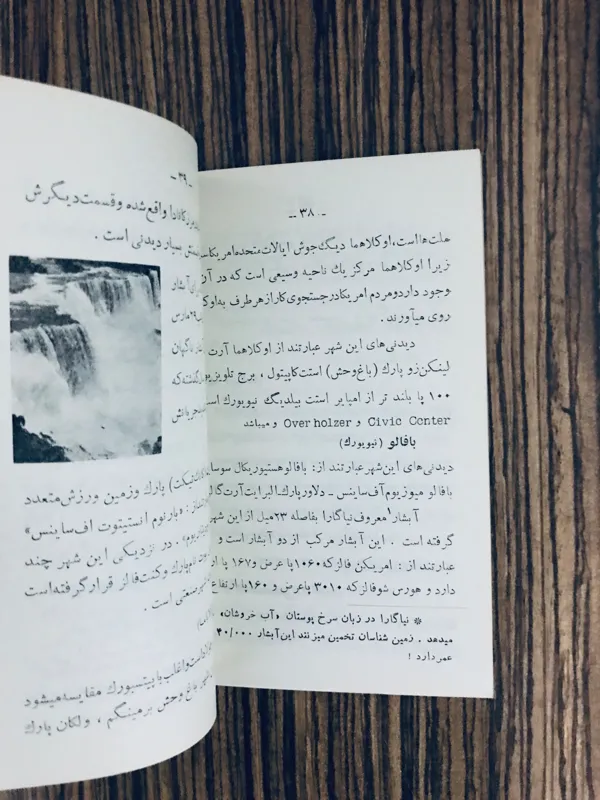 ـ ۳۸ ـ
ملت‌هااست، اوکلاهما دیگ جوش ایالات متحده امریکاست
زیرا اوکلاهما مرکز یك ناحیه وسیعی است که در آن
وجود دارد و مردم امریکا در جستجوی کار از هر طرف به اوکلا
روی میآورند .
دیدنی‌های این شهر عبارتند از اوکلاهما آرت
لینکن‌زو پارك (باغ‌وحش) استت کاپیتول ، برج تلویزیو
۱۰۰ پا بلند تر از امپایر استت بیلدیگ نیویورك است
Civic Center و Over holzer و میباشد
بافالو (نیویورك)
دیدنی‌های این‌شهر عبارتند از: بافالو هستیوریکال سوسا
بافالو میوزیوم آف ساینس ـ دلاور پارك ـ البرایت آرت گال
آبشار معروف نیاگارا بفاصله ۲۳ میل از این شهر
گرفته است . این آبشار مرکب از دو آبشار است و
عبارتند از : امریکن فالز که ۱۰۶۰ پا عرض و ۱۶۷ پا ار
دارد و هورس شوفالز که ۳۰۱۰ پا عرض و ۱۶۰ پا ارتفاع
* نیاگارا در زبان سرخ پوستان «آب خروشان»
میدهد . زمین شناسان تخمین میزنند این آبشار ۴۰/۰۰۰
عمر دارد !
ـ ۳۹ ـ
واقع شده و قسمت دیگرش
بسیار دیدنی است .
آبشار
مارس
ناگهان
که
پارك و زمین ورزش متعدد
انستیتوت اف ساینس»
. در نزدیکی این شهر چند
پارك و کنت فالز قرار گرفته است
صنعتی است .
است و اغلب با پیتسبورك مقایسه میشود
باغ وحش برمینگم ، ولکان پارك